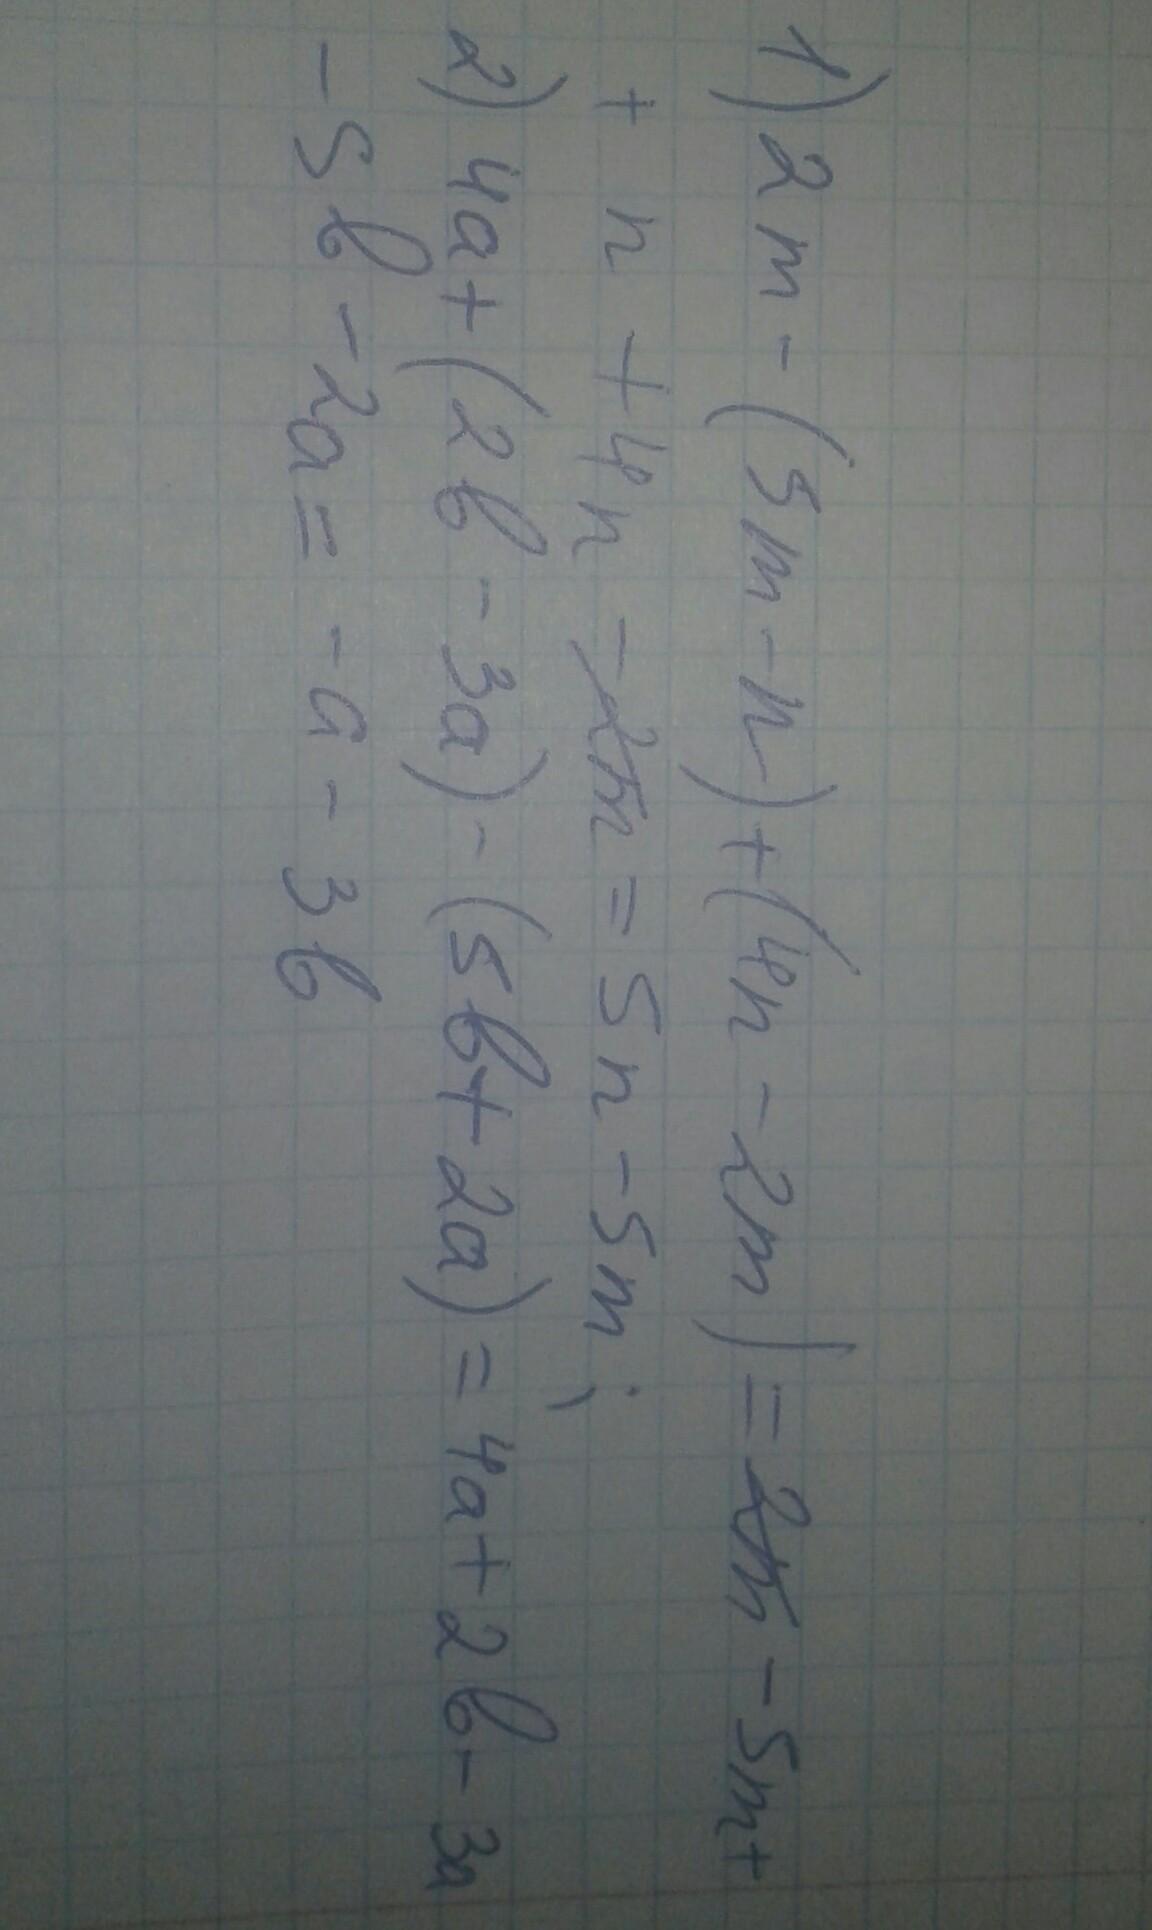 1) 2m - (5m - n) + (4n - 2m) = 2m - 5m +
+ n + 4n - 2m = 5n - 5m;
2) 4a + (2b - 3a) - (5b + 2a) = 4a + 2b - 3a
- 5b - 2a = -a - 3b